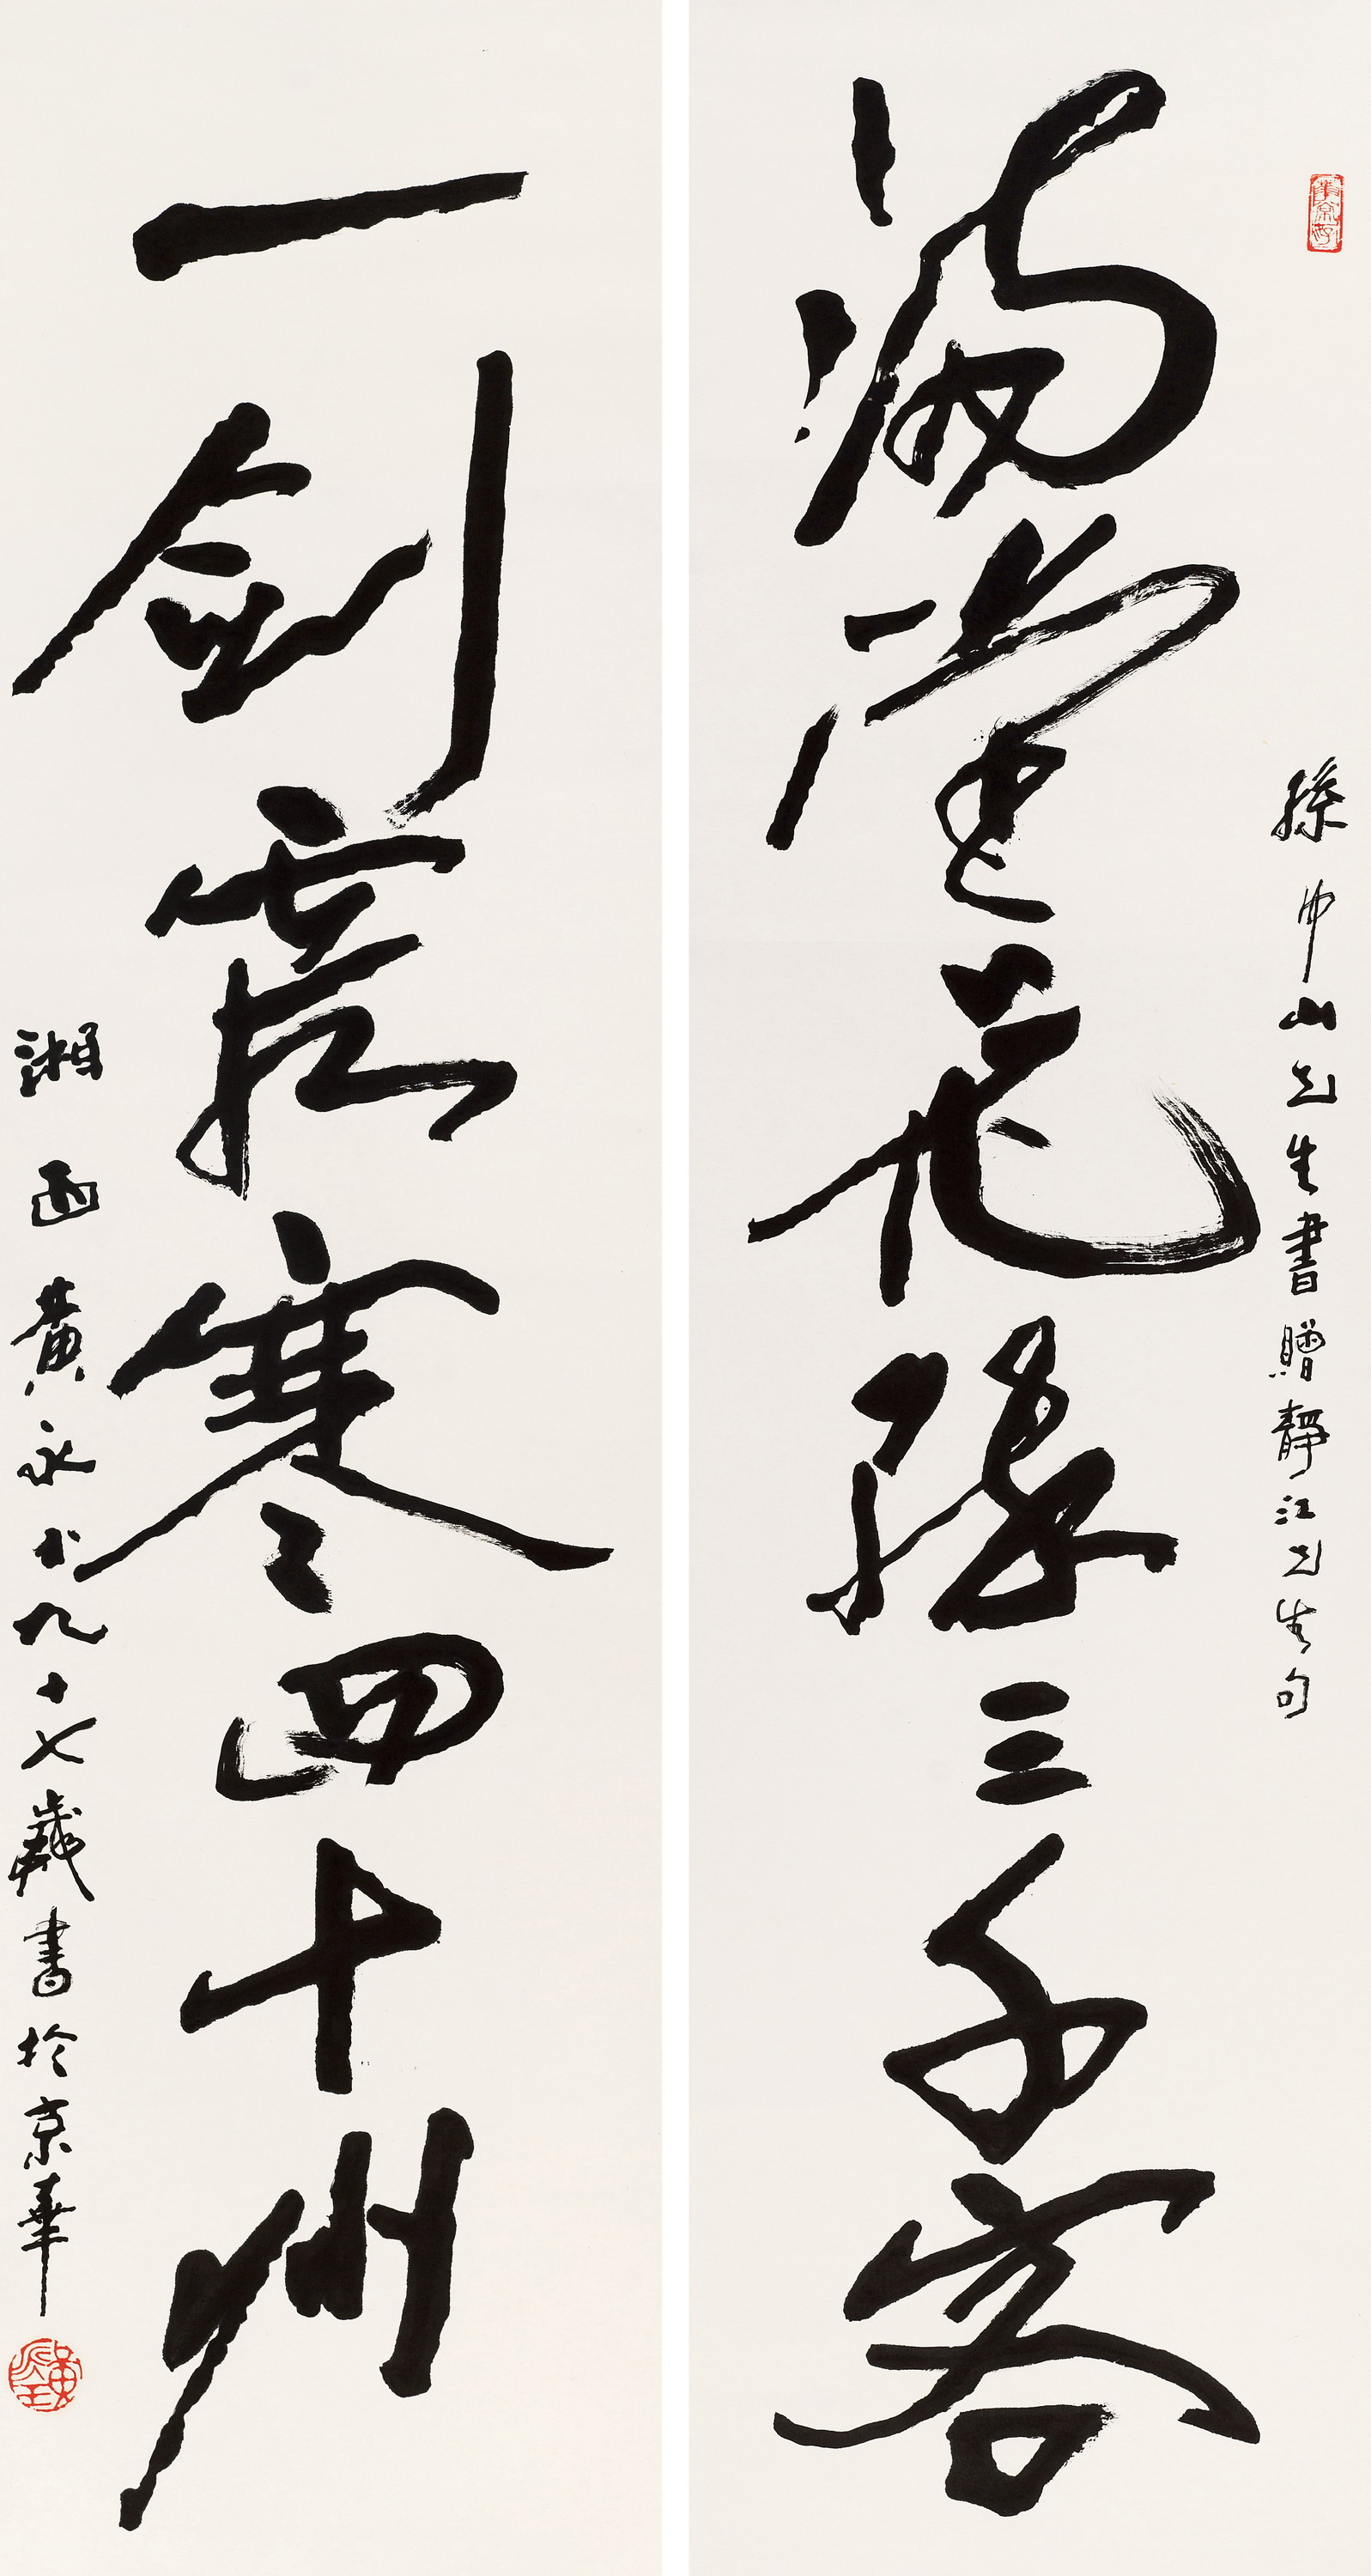 孫中山先生書贈靜江先生句
滿堂花醉三千客
一劍霜寒四十州
湘西黃永玉九十七歲書於京華
黃永玉